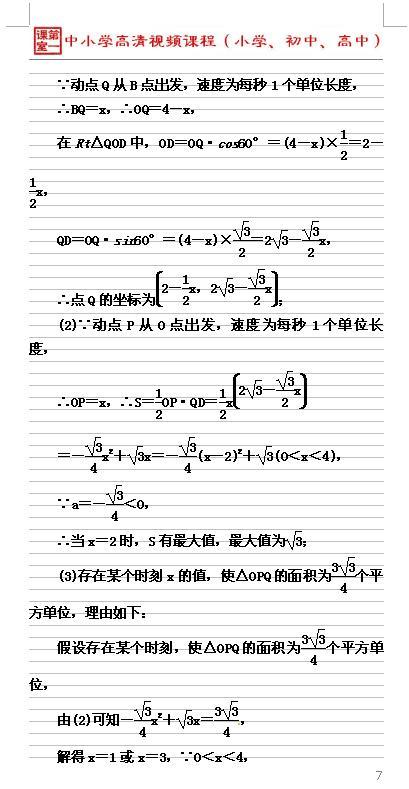 第一课室 中小学高清视频课程（小学、初中、高中）
∵动点Q从B点出发，速度为每秒1个单位长度，
∴BQ＝x，∴OQ＝4－x，
在Rt△QOD中，OD＝OQ·cos60°＝(4－x)×1/2＝2－
1/2x，
QD＝OQ·sin60°＝(4－x)×√3/2＝2√3－√3/2x，
∴点Q的坐标为(2－1/2x，2√3－√3/2x)；
(2)∵动点P从O点出发，速度为每秒1个单位长
度，
∴OP＝x，∴S＝1/2OP·QD＝1/2x(2√3－√3/2x)
＝－√3/4x²＋√3x＝－√3/4(x－2)²＋√3(0＜x＜4)，
∵a＝－√3/4＜0，
∴当x＝2时，S有最大值，最大值为√3；
(3)存在某个时刻x的值，使△OPQ的面积为3√3/4个平
方单位，理由如下：
假设存在某个时刻，使△OPQ的面积为3√3/4个平方单
位，
由(2)可知－√3/4x²＋√3x＝3√3/4，
解得x＝1或x＝3，∵0＜x＜4，
7